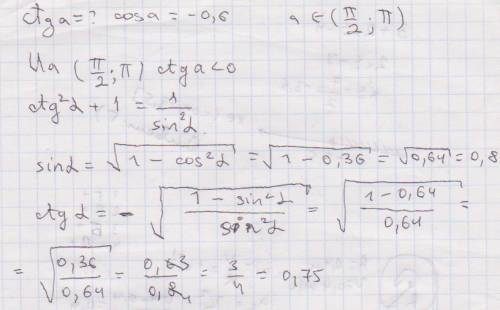 ctg a = ? cos a = -0,6 a ∈ (π/2; π)
На (π/2; π) ctg a < 0
ctg²α + 1 = 1/sin²α
sinα = √(1 - cos²α) = √(1 - 0,36) = √0,64 = 0,8
ctg α = -√((1 - sin²α)/sin²α) = √((1 - 0,64)/0,64) =
= √(0,36/0,64) = 0,63/0,84 = 3/4 = 0,75